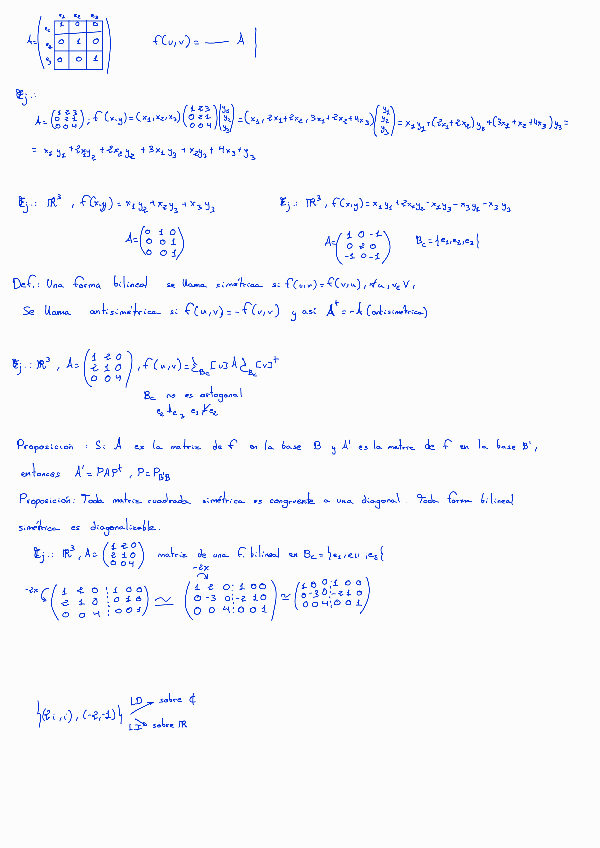 e₁ e₂ e₃
A = ( e₁ 1 0 0 ; e₂ 0 1 0 ; e₃ 0 0 1 )   f(u,v) = — A |
Ej.:
A = (1 2 3 ; 0 2 1 ; 0 0 4) ; f(x,y) = (x₁,x₂,x₃) (1 2 3 ; 0 2 1 ; 0 0 4) (y₁ ; y₂ ; y₃) = (x₁, 2x₁+2x₂, 3x₁+x₂+4x₃) (y₁ ; y₂ ; y₃) = x₁y₁+(2x₁+2x₂)y₂+(3x₁+x₂+4x₃)y₃ =
= x₁y₁ + 2x₁y₂ + 2x₂y₂ + 3x₁y₃ + x₂y₃ + 4x₃y₃
Ej.: ℝ³, f(x,y) = x₁y₂ + x₂y₃ + x₃y₃   Ej.: ℝ³, f(x,y) = x₁y₁ + 2x₂y₂ - x₁y₃ - x₃y₁ - x₃y₃
A = (0 1 0 ; 0 0 1 ; 0 0 1)   A = (1 0 -1 ; 0 2 0 ; -1 0 -1)   Bc = {e₁,e₂,e₃}
Def.: Una forma bilineal se llama simétrica si f(u,v) = f(v,u), ∀u,v∈V,
Se llama antisimétrica si f(u,v) = -f(v,u) y así Aᵗ = -A (antisimétrica)
Ej.: ℝ³, A = (1 2 0 ; 2 1 0 ; 0 0 4), f(u,v) = Bc[u] A Bc[v]ᵗ
Bc no es ortogonal
e₂ ⊥ e₃, e₁ ⊥̸ e₂
Proposición: Si A es la matriz de f en la base B y A' es la matriz de f en la base B',
entonces A' = PAPᵗ, P = P_B'B
Proposición: Toda matriz cuadrada simétrica es congruente a una diagonal Toda forma bilineal
simétrica es diagonalizable.
Ej.: ℝ³, A = (1 2 0 ; 2 1 0 ; 0 0 4) matriz de una f. bilineal en Bc = {e₁,e₂,e₃}
-2x
-2x (1 2 0 ⋮ 1 0 0 ; 2 1 0 ⋮ 0 1 0 ; 0 0 4 ⋮ 0 0 1) ≃ (1 2 0 ⋮ 1 0 0 ; 0 -3 0 ⋮ -2 1 0 ; 0 0 4 ⋮ 0 0 1) ≃ (1 0 0 ⋮ 1 0 0 ; 0 -3 0 ⋮ -2 1 0 ; 0 0 4 ⋮ 0 0 1)
LD sobre ℂ
{(2i,i), (-2,-1)}
LI sobre ℝ